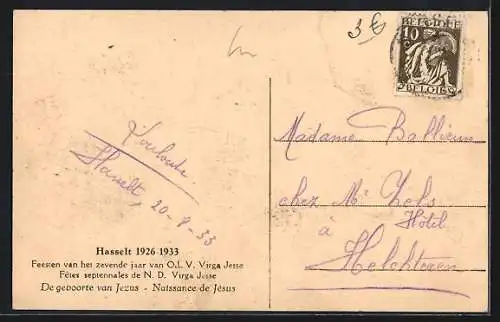 3€
BELGIQUE
10
BELGIE
Hasselt, 20-8-33
Madame
chez Mr
Hôtel
à
Helchteren
Hasselt 1926-1933
Feesten van het zevende jaar van O.L.V. Virga Jesse
Fêtes septennales de N. D. Virga Jesse
De geboorte van Jezus - Naissance de Jésus